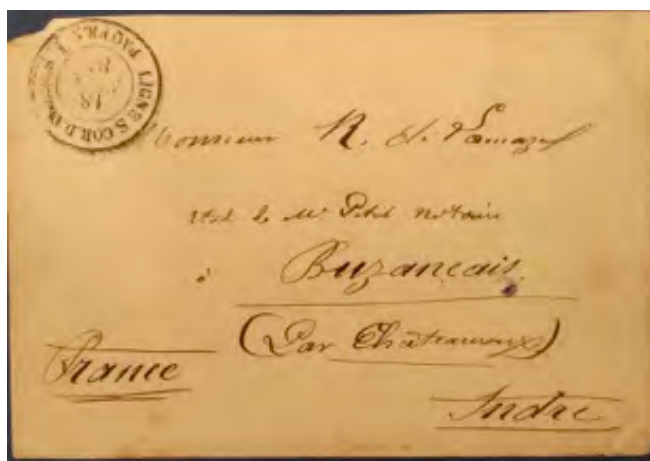 PAQ. FR. LIGNE S CORD
18
Monsieur R. de
Me Petit Notaire
à Buzançais
(Par Châteauroux)
France
Indre